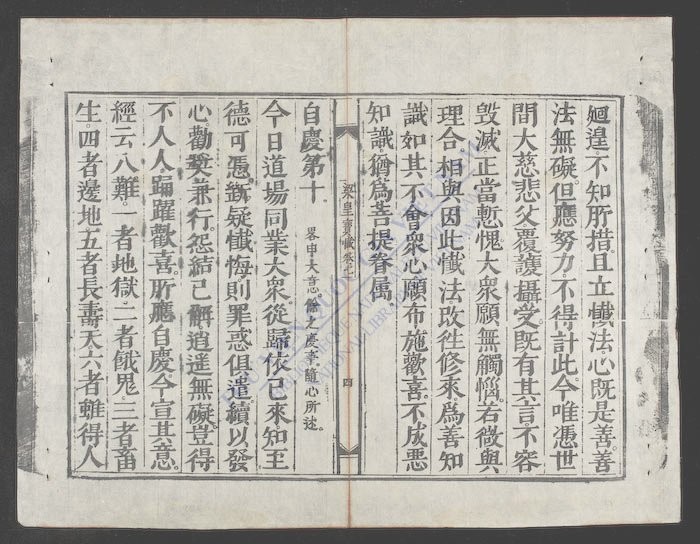 廻遑。不知所措。且立懺法。心既是善。善
法無礙。但應努力。不得計此。今唯憑世
間大慈悲父覆護攝受。既有其言。不容
毀滅。正當慙愧大衆。願無觸惱。若微與
理合。相與因此懺法。改徃修來。爲善知
識。如其不會衆心。願布施歡喜。不成惡
知識。猶爲菩提眷属
梁皇寶懺卷七
四
自慶第十 畧申大意餘之慶幸隨心所述。
今日道場同業大衆。從歸依已來。知至
德可憑。斷疑懺悔。則罪惑俱遣。續以發
心。勸奬兼行。怨結已觧。逍遥無礙。豈得
不人人踊躍歡喜。所應自慶。今宣其意。
經云八難。一者地獄。二者餓鬼。三者畜
生。四者邊地。五者長壽天。六者雖得人